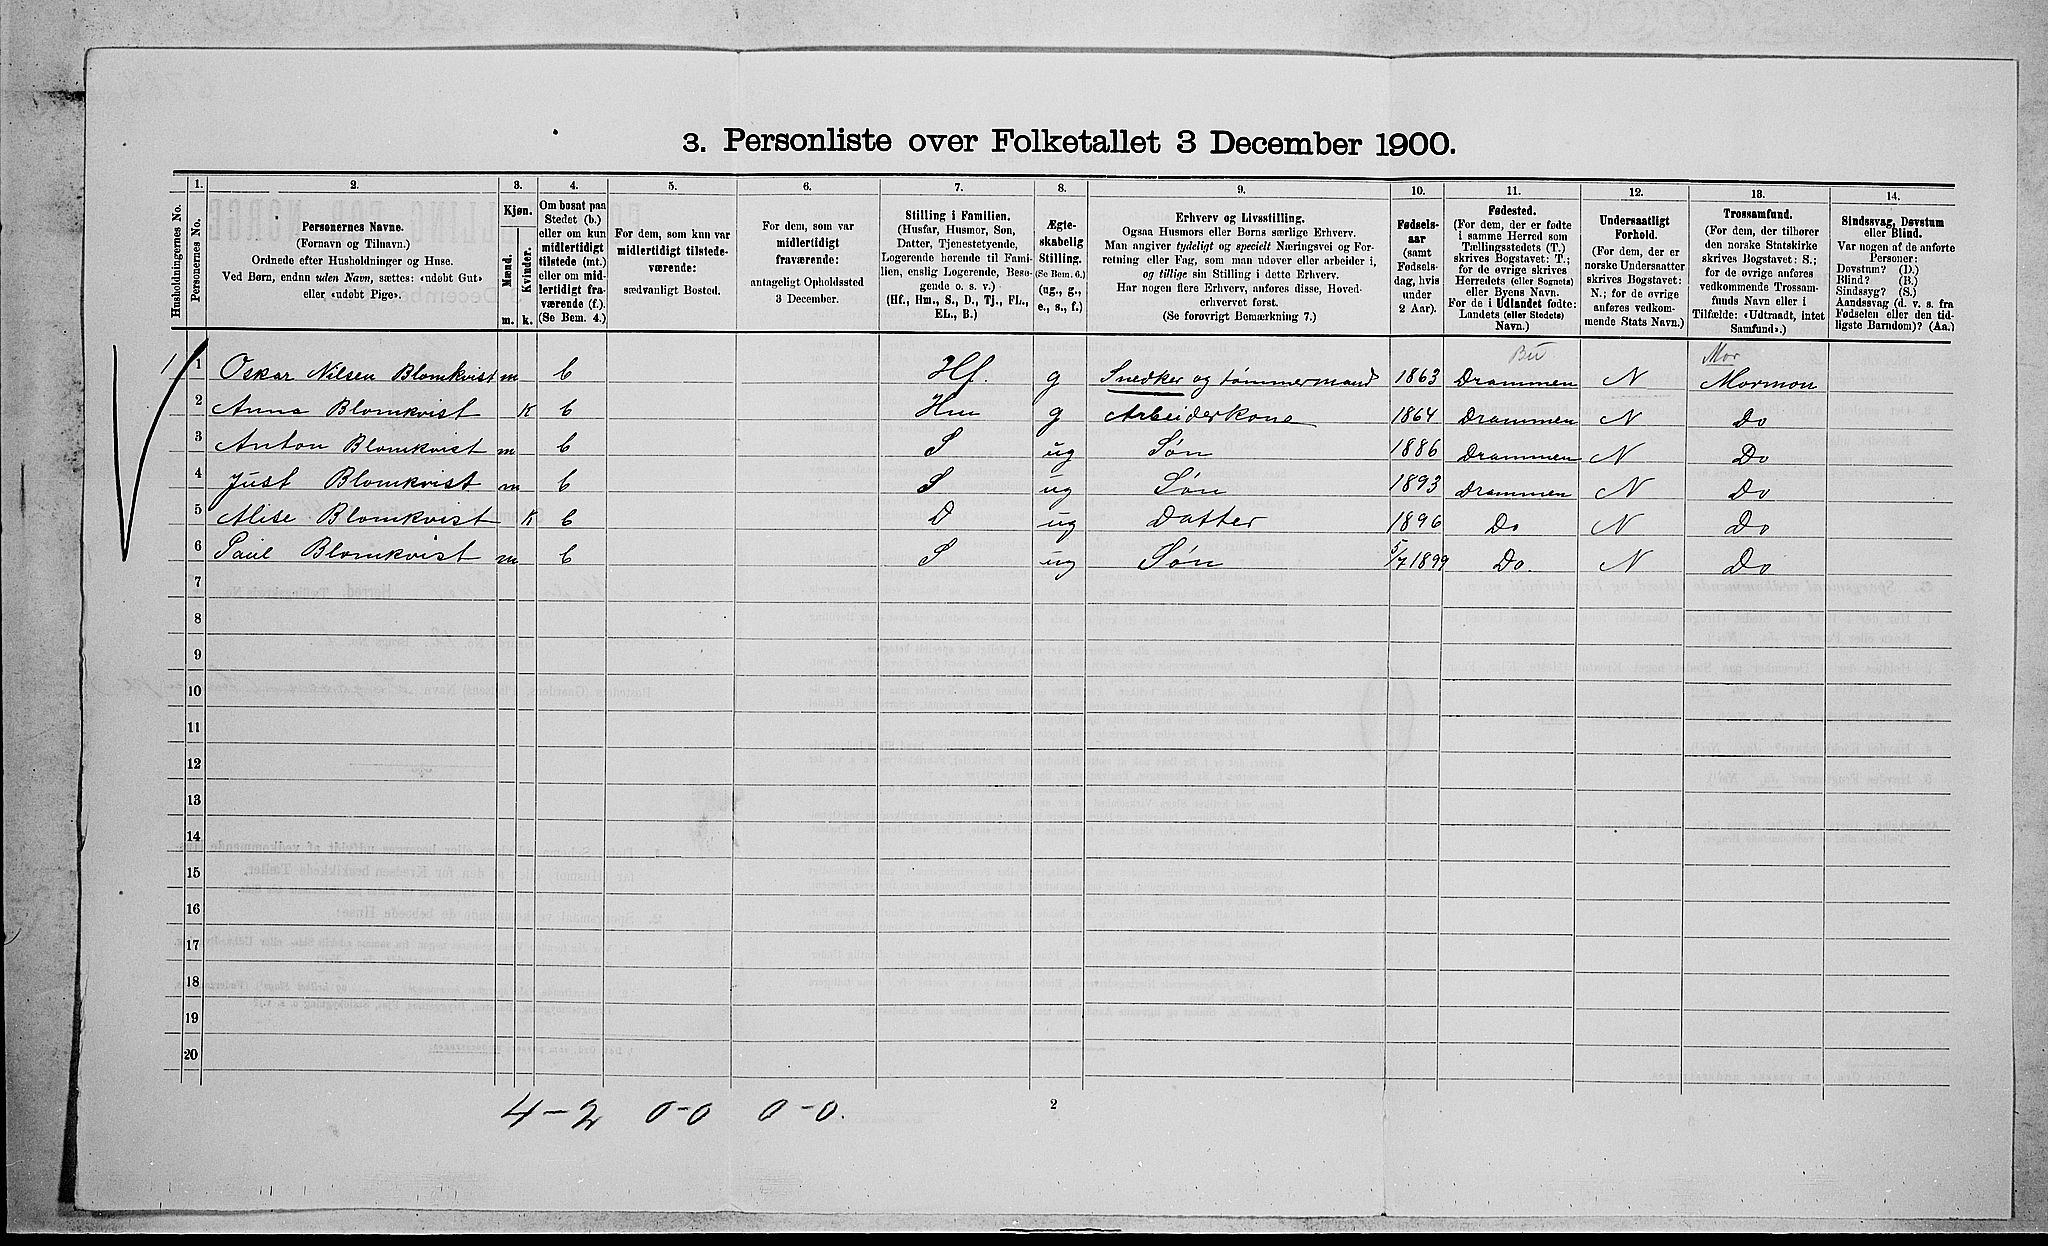 3. Personliste over Folketallet 3 December 1900.
Husholdningernes No.
1.
Personernes No.
2.
Personernes Navne.
(Fornavn og Tilnavn.)
Ordnede efter Husholdninger og Huse.
Ved Børn, endnu uden Navn, sættes: «udøbt Gut»
eller «udøbt Pige».
3.
Kjøn.
Mænd.
Kvinder.
m. k.
4.
Om bosat paa
Stedet (b.)
eller om kun
midlertidigt
tilstede (mt.)
eller om mid-
lertidigt fra-
værende (f.).
(Se Bem. 4.)
5.
For dem, som kun var
midlertidigt tilstede-
værende:
sædvanligt Bosted.
6.
For dem, som var
midlertidigt
fraværende:
antageligt Opholdssted
3 December.
7.
Stilling i Familien.
(Husfar, Husmor, Søn,
Datter, Tjenestetyende,
Logerende hørende til Fami-
lien, enslig Logerende, Besø-
gende o. s. v.)
(Hf., Hm., S., D., Tj., FL.,
EL., B.)
8.
Ægte-
skabelig
Stilling.
(Se Bem. 6.)
(ug., g.,
e., s., f.)
9.
Erhverv og Livsstilling.
Ogsaa Husmors eller Børns særlige Erhverv.
Man angiver tydeligt og specielt Næringsvei og For-
retning eller Fag, som man udøver eller arbeider i,
og tillige sin Stilling i dette Erhverv.
Har nogen flere Erhverv, anføres disse, Hoved-
erhvervet først.
(Se forøvrigt Bemærkning 7.)
10.
Fødsels-
aar
(samt
Fødsels-
dag, hvis
under
2 Aar).
11.
Fødested.
(For dem, der er fødte
i samme Herred som
Tællingsstedets (T.)
skrives Bogstavet: T.;
for de øvrige skrives
Herredets (eller Sognets)
eller Byens Navn.
For de i Udlandet fødte:
Landets (eller Stedets)
Navn.)
12.
Undersaatligt
Forhold.
(For dem, der er
norske Undersaatter
skrives Bogstavet:
N.; for de øvrige
anføres vedkom-
mende Stats Navn.)
13.
Trossamfund.
(For dem, der tilhører
den norske Statskirke
skrives Bogstavet: S.;
for de øvrige anføres
vedkommende Trossam-
funds Navn eller i
Tilfælde: «Udtraadt, intet
Samfund».)
14.
Sindssvag, Døvstum
eller Blind.
Var nogen af de anførte
Personer:
Døvstum? (D.)
Blind? (B.)
Sindssyg? (S.)
Aandssvag (d. v. s. fra
Fødselen eller den tid-
ligste Barndom)? (Aa.)
Bu Mor
1 1 Oskar Nilsen Blomkvist m b Hf. g Snedker og tømmermand 1863 Drammen N Mormon
2 Anna Blomkvist K b Hm g Arbeiderkone 1864 Drammen N Do
3 Anton Blomkvist m b S ug Søn 1886 Drammen N Do
4 Just Blomkvist m b S ug Søn 1893 Drammen N Do
5 Alise Blomkvist K b D ug Datter 1896 Do N Do
6 Paul Blomkvist m b S ug Søn 5/7 1899 Do. N Do
7
8
9
10
11
12
13
14
15
16
17
18
19
20
4-2 0-0 0-0.
2